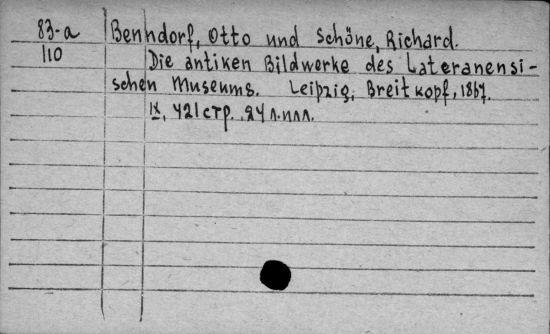 83-a Benndorf, Otto und Schöne, Richard.
110 Die antiken Bildwerke des Lateranensi-
schen Museums. Leipzig, Breitkopf, 1867.
IX, 421 стр. 24 л. илл.